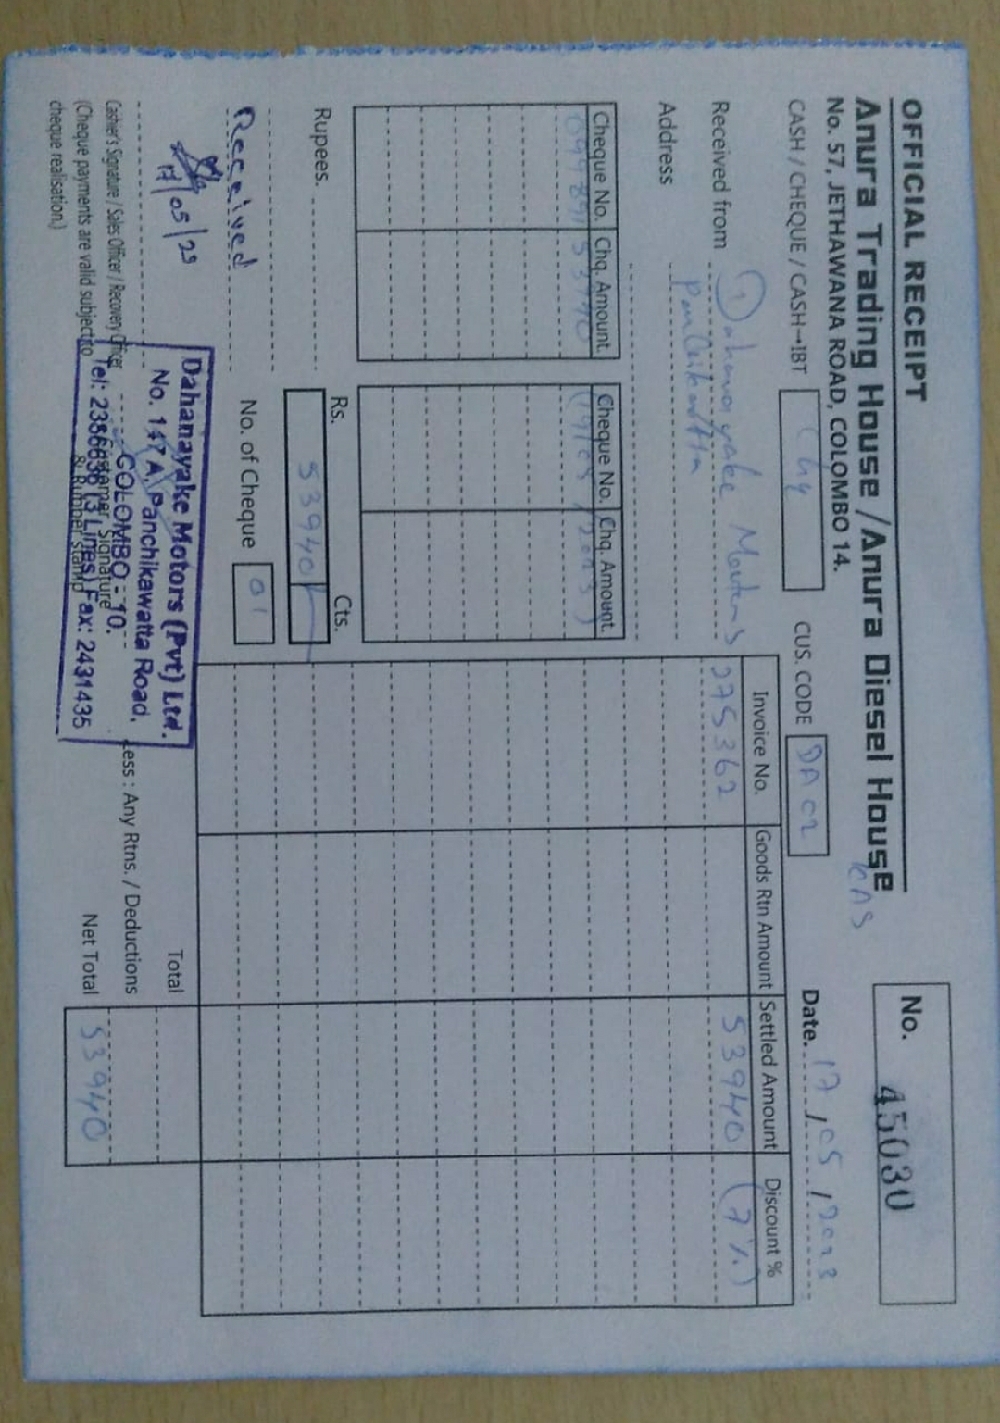 OFFICIAL RECEIPT
Anura Trading House / Anura Diesel House
No. 57, JETHAWANA ROAD, COLOMBO 14.
No. 45030
CASH / CHEQUE / CASH→IBT Chq CUS. CODE DA 02 Date. 17 / 05 / 2023
Received from Dahanayake Motors
Address Panchikawatta
Cheque No. Chq. Amount. Cheque No. Chq. Amount.
099891 53940 (19/05/2023)
Invoice No. Goods Rtn Amount Settled Amount Discount %
275362 53940 (7%)
Rupees. Rs. Cts.
53940/-
No. of Cheque 01
Received
17/05/23
Total
Less : Any Rtns. / Deductions
Net Total 53940
Cashier's Signature / Sales Officer / Recovery Officer
Customer Signature
& Rubber stamp
(Cheque payments are valid subject to
cheque realisation.)
Dahanayake Motors (Pvt) Ltd.
No. 147 A, Panchikawatta Road,
COLOMBO - 10.
Tel: 2386638 (3 Lines) Fax: 2431435